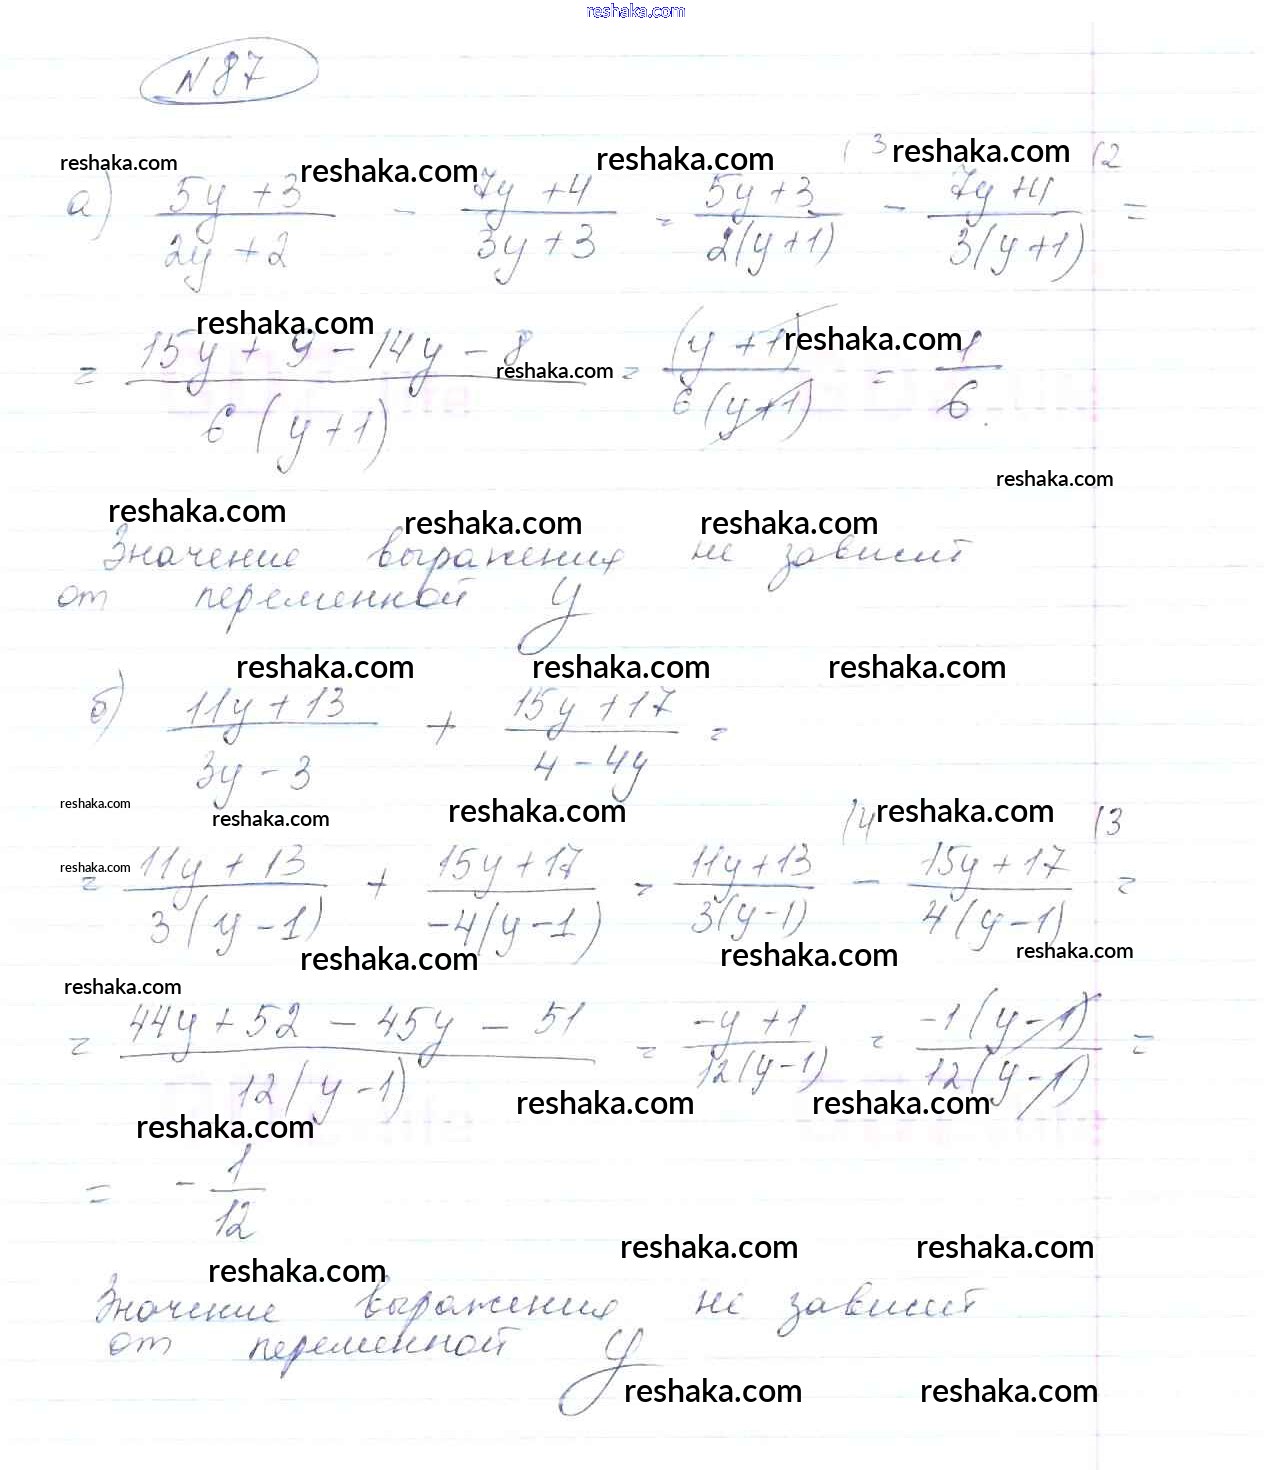 reshaka.com
N 87
reshaka.com reshaka.com reshaka.com | 3 reshaka.com | 2
а) (5y + 3)/(2y + 2) - (7y + 4)/(3y + 3) = (5y + 3)/(2(y + 1)) - (7y + 4)/(3(y + 1)) =
reshaka.com reshaka.com reshaka.com
= (15y + 9 - 14y - 8)/(6(y + 1)) = (y + 1)/(6(y + 1)) = 1/6.
reshaka.com
reshaka.com reshaka.com reshaka.com
Значение выражения не зависит
от переменной y
reshaka.com reshaka.com reshaka.com
б) (11y + 13)/(3y - 3) + (15y + 17)/(4 - 4y) =
reshaka.com reshaka.com reshaka.com |4 reshaka.com |3
reshaka.com
= (11y + 13)/(3(y - 1)) + (15y + 17)/(-4(y - 1)) = (11y + 13)/(3(y - 1)) - (15y + 17)/(4(y - 1)) =
reshaka.com reshaka.com reshaka.com
reshaka.com
= (44y + 52 - 45y - 51)/(12(y - 1)) = (-y + 1)/(12(y - 1)) = (-1(y - 1))/(12(y - 1)) =
reshaka.com reshaka.com reshaka.com
= - 1/12
reshaka.com reshaka.com reshaka.com
Значение выражения не зависит
от переменной y
reshaka.com reshaka.com